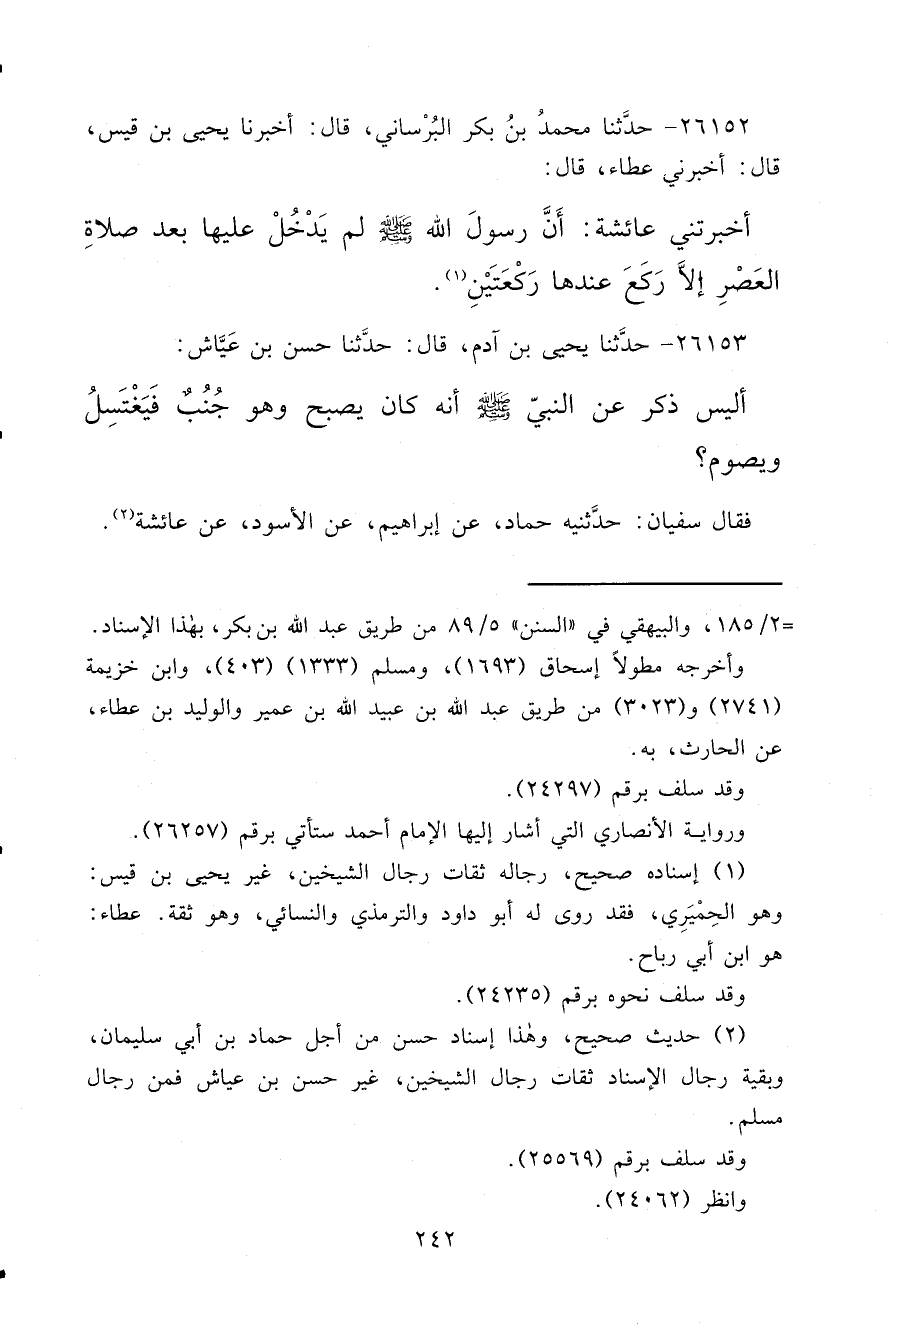 ٢٦١٥٢- حدَّثنا محمدُ بنُ بكر البُرْساني، قال: أخبرنا يحيى بن قيس،
قال: أخبرني عطاء، قال:
أخبرتني عائشة: أَنَّ رسولَ الله ﷺ لم يَدْخُلْ عليها بعد صلاةِ
العَصْرِ إلاَّ رَكَعَ عندها رَكْعَتَيْنِ(١).
٢٦١٥٣- حدَّثنا يحيى بن آدم، قال: حدَّثنا حسن بن عَيَّاش:
أليس ذكر عن النبيّ ﷺ أنه كان يصبح وهو جُنُبٌ فَيَغْتَسِلُ
ويصوم؟
فقال سفيان: حدَّثنيه حماد، عن إبراهيم، عن الأسود، عن عائشة(٢).
=٢/ ١٨٥، والبيهقي في «السنن» ٥/ ٨٩ من طريق عبد الله بن بكر، بهٰذا الإسناد.
وأخرجه مطولاً إسحاق (١٦٩٣)، ومسلم (١٣٣٣) (٤٠٣)، وابن خزيمة
(٢٧٤١) و(٣٠٢٣) من طريق عبد الله بن عبيد الله بن عمير والوليد بن عطاء،
عن الحارث، به.
وقد سلف برقم (٢٤٢٩٧).
وروايـة الأنصاري التي أشار إليها الإمام أحمد ستأتي برقم (٢٦٢٥٧).
(١) إسناده صحيح، رجاله ثقات رجال الشيخين، غير يحيى بن قيس:
وهو الحِمْيَرِي، فقد روى له أبو داود والترمذي والنسائي، وهو ثقة. عطاء:
هو ابن أبي رباح.
وقد سلف نحوه برقم (٢٤٢٣٥).
(٢) حديث صحيح، وهٰذا إسناد حسن من أجل حماد بن أبي سليمان،
وبقية رجال الإسناد ثقات رجال الشيخين، غير حسن بن عياش فمن رجال
مسلم.
وقد سلف برقم (٢٥٥٦٩).
وانظر (٢٤٠٦٢).
٢٤٢